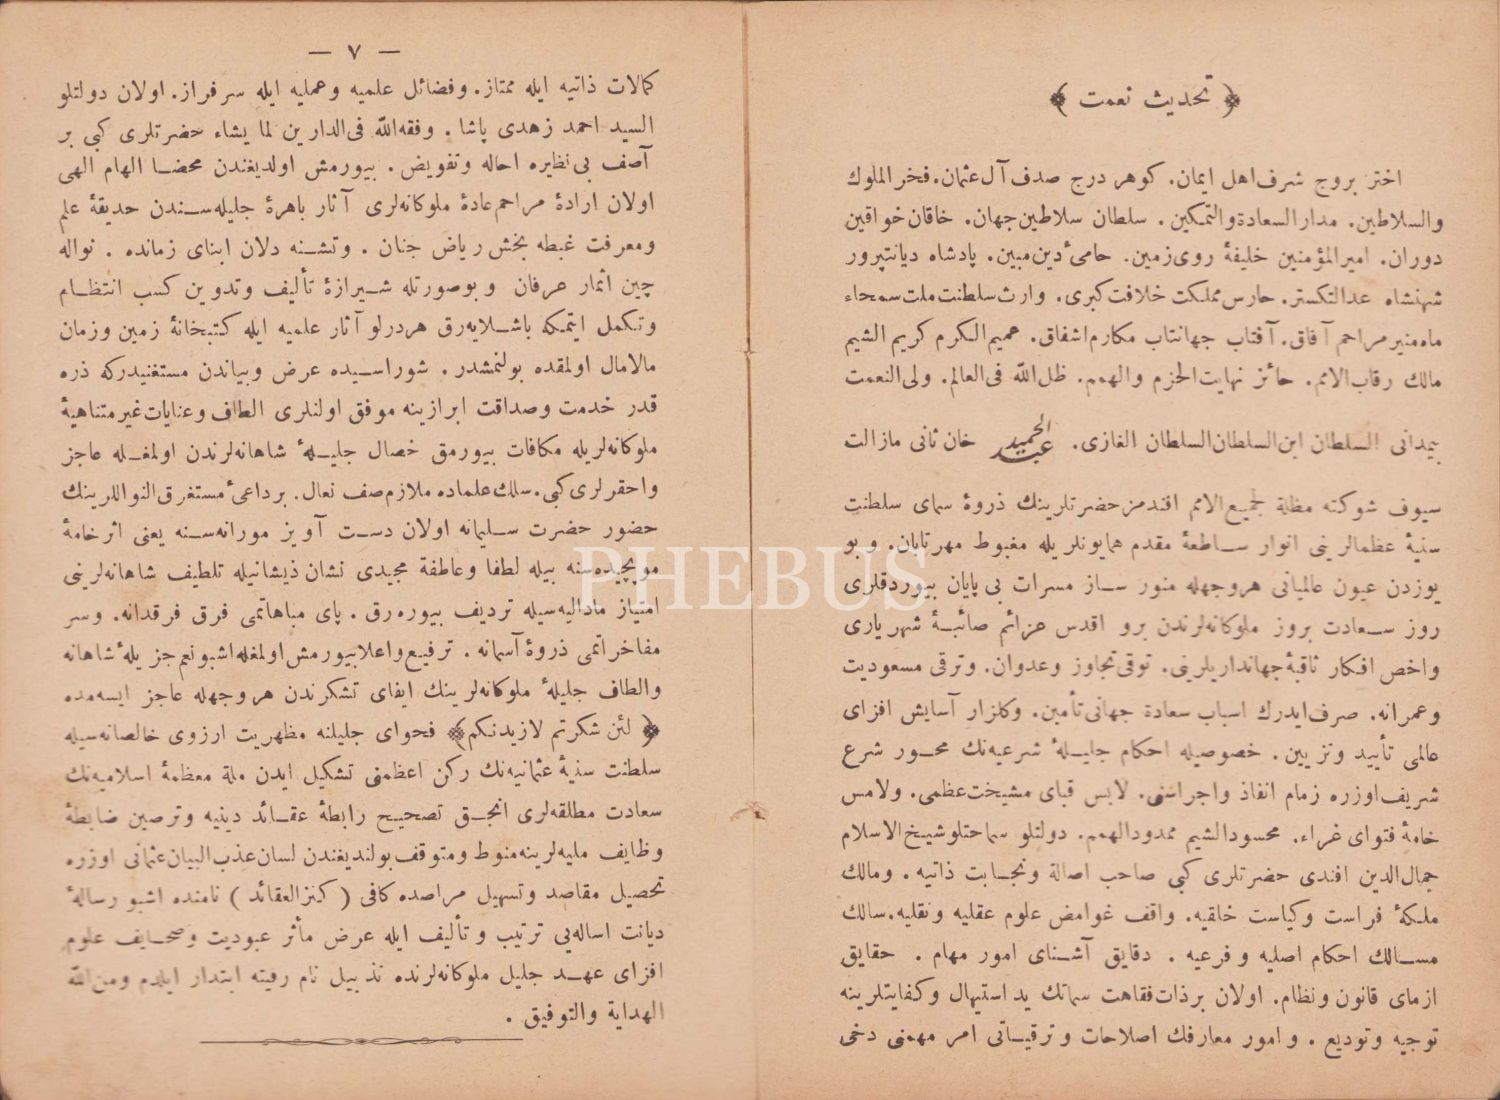 ﴿ تحديث نعمت ﴾
اختر بروج شرف اهل ايمان. كوهر درج صدف آل عثمان. فخر الملوك
والسلاطين. مدار السعادة والتمكين. سلطان سلاطين جهان. خاقان خواقين
دوران. امير المؤمنين خليفهٔ روى زمين. حامئ دين مبين. پادشاه ديانتپرور
شهنشاه عدالتكستر. حارس مملكت خلافت كبرى. وارث سلطنت ملت سمحاء
ماه منير مراحم آفاق. آفتاب جهانتاب مكارم اشفاق. عميم الكرم كريم الشيم
مالك رقاب الامم. حائز نهايت الحزم والهمم. ظل الله فى العالم. ولى النعمت
بيمدانى السلطان ابن السلطان السلطان الغازى. عبد الحميد خان ثانى مازالت
سيوف شوكته مظلة لجميع الامم افندمز حضرتلرينك ذروهٔ سماى سلطنت
سنيهٔ عظمالرينى انوار ساطعهٔ مقدم همايونلريله مغبوط مهرتابان. و بو
يوزدن عيون عالميانى هر وجهله منور ساز مسرات بى پايان بيوردقلرى
روز سعادت بروز ملوكانه لرندن برو اقدس عزائم صائبهٔ شهريارى
واخص افكار ثاقبهٔ جهانداريلرينى. توقئ تجاوز وعدوان. وترقى مسعوديت
وعمرانه. صرف ايدرك اسباب سعادة جهانى تأمين. وكلزار آسايش افزاى
عالمى تأييد وتزيين. خصوصيله احكام جليلهٔ شرعيه نك محور شرع
شريف اوزره زمام انفاذ واجراسنى. لابس قباى مشيخت عظمى. ولامس
خامهٔ فتواى غراء. محسود الشيم ممدود الهمم. دولتلو سماحتلو شيخ الاسلام
جمال الدين افندى حضرتلرى كبى صاحب اصالة ونجابت ذاتيه. ومالك
ملكهٔ فراست وكياست خلقيه. واقف غوامض علوم عقليه ونقليه. سالك
مسالك احكام اصليه و فرعيه. دقايق آشناى امور مهام. حقايق
ازماى قانون ونظام. اولان بر ذات فقاهت سماتك يد استيهال وكفايتلرينه
توجيه وتوديع. و امور معارفك اصلاحات و ترقياتى امر مهمنى دخى
— ٧ —
كمالات ذاتيه ايله ممتاز. وفضائل علميه وعمليه ايله سرفراز. اولان دولتلو
السيد احمد زهدى پاشا. وفقه الله فى الدارين لما يشاء حضرتلرى كبى بر
آصف بى نظيره احاله وتفويض. بيورمش اولديغندن محضا الهام الهى
اولان ارادهٔ مراحم عادهٔ ملوكانه لرى آثار باهرهٔ جليله سندن حديقهٔ علم
ومعرفت غبطه بخش رياض جنان. وتشنه دلان ابناى زمانده. نواله
چين اثمار عرفان و بوصورتله شيرازهٔ تأليف وتدوين كسب انتظام
وتكمل ايتمكه باشلايه رق هردرلو آثار علميه ايله كتبخانهٔ زمين وزمان
مالامال اولمقده بولنمشدر. شوراسيده عرض وبياندن مستغنيدركه ذره
قدر خدمت وصداقت ابرازينه موفق اولنلرى الطاف وعنايات غير متناهيهٔ
ملوكانه لريله مكافات بيورمق خصال جليلهٔ شاهانه لرندن اولمغله عاجز
واحقرلرى كبى. سلك علماده ملازم صف نعال. بر داعئ مستغرق النواللرينك
حضور حضرت سليمانه اولان دست آويز مورانه سنه يعنى اثر خامهٔ
موپچيده سنه بيله لطفا وعاطفة مجيدى نشان ذيشانيله تلطيف شاهانه لرينى
امتياز مداليه سيله ترديف بيوره رق. پاى مباهاتمى فرق فرقدانه. وسر
مفاخراتمى ذروهٔ آسمانه. ترفيع واعلا بيورمش اولمغله اشبو نعم جزيلهٔ شاهانه
والطاف جليلهٔ ملوكانه لرينك ايفاى تشكرندن هر وجهله عاجز ايسه مده
﴿ لئن شكرتم لازيدنكم ﴾ فحواى جليلنه مظهريت ارزوى خالصانه سيله
سلطنت سنيهٔ عثمانيه نك ركن اعظمنى تشكيل ايدن ملة معظمهٔ اسلاميه نك
سعادت مطلقه لرى انجق تصحيح رابطهٔ عقائد دينيه وترصين ضابطهٔ
وظايف مليه لرينه منوط ومتوقف بولنديغندن لسان عذب البيان عثمانى اوزره
تحصيل مقاصد وتسهيل مراصده كافى ( كنز العقائد ) نامنده اشبو رسالهٔ
ديانت اساله يى ترتيب و تأليف ايله عرض مآثر عبوديت وصحايف علوم
افزاى عهد جليل ملوكانه لرنده تذييل نام رقيته ابتدار ايلدم ومن الله
الهداية والتوفيق.
PHEBUS